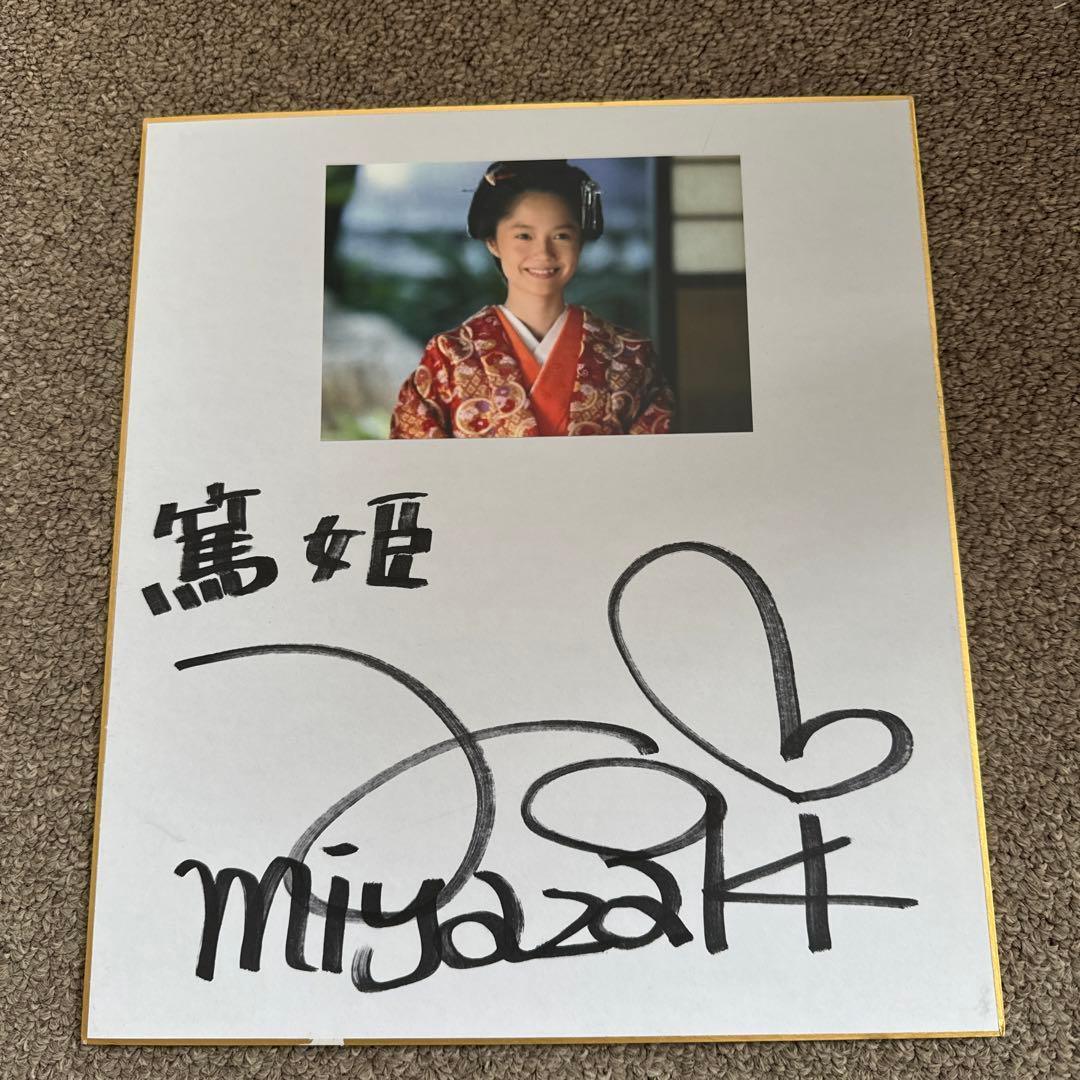 篤姫
miyazaki